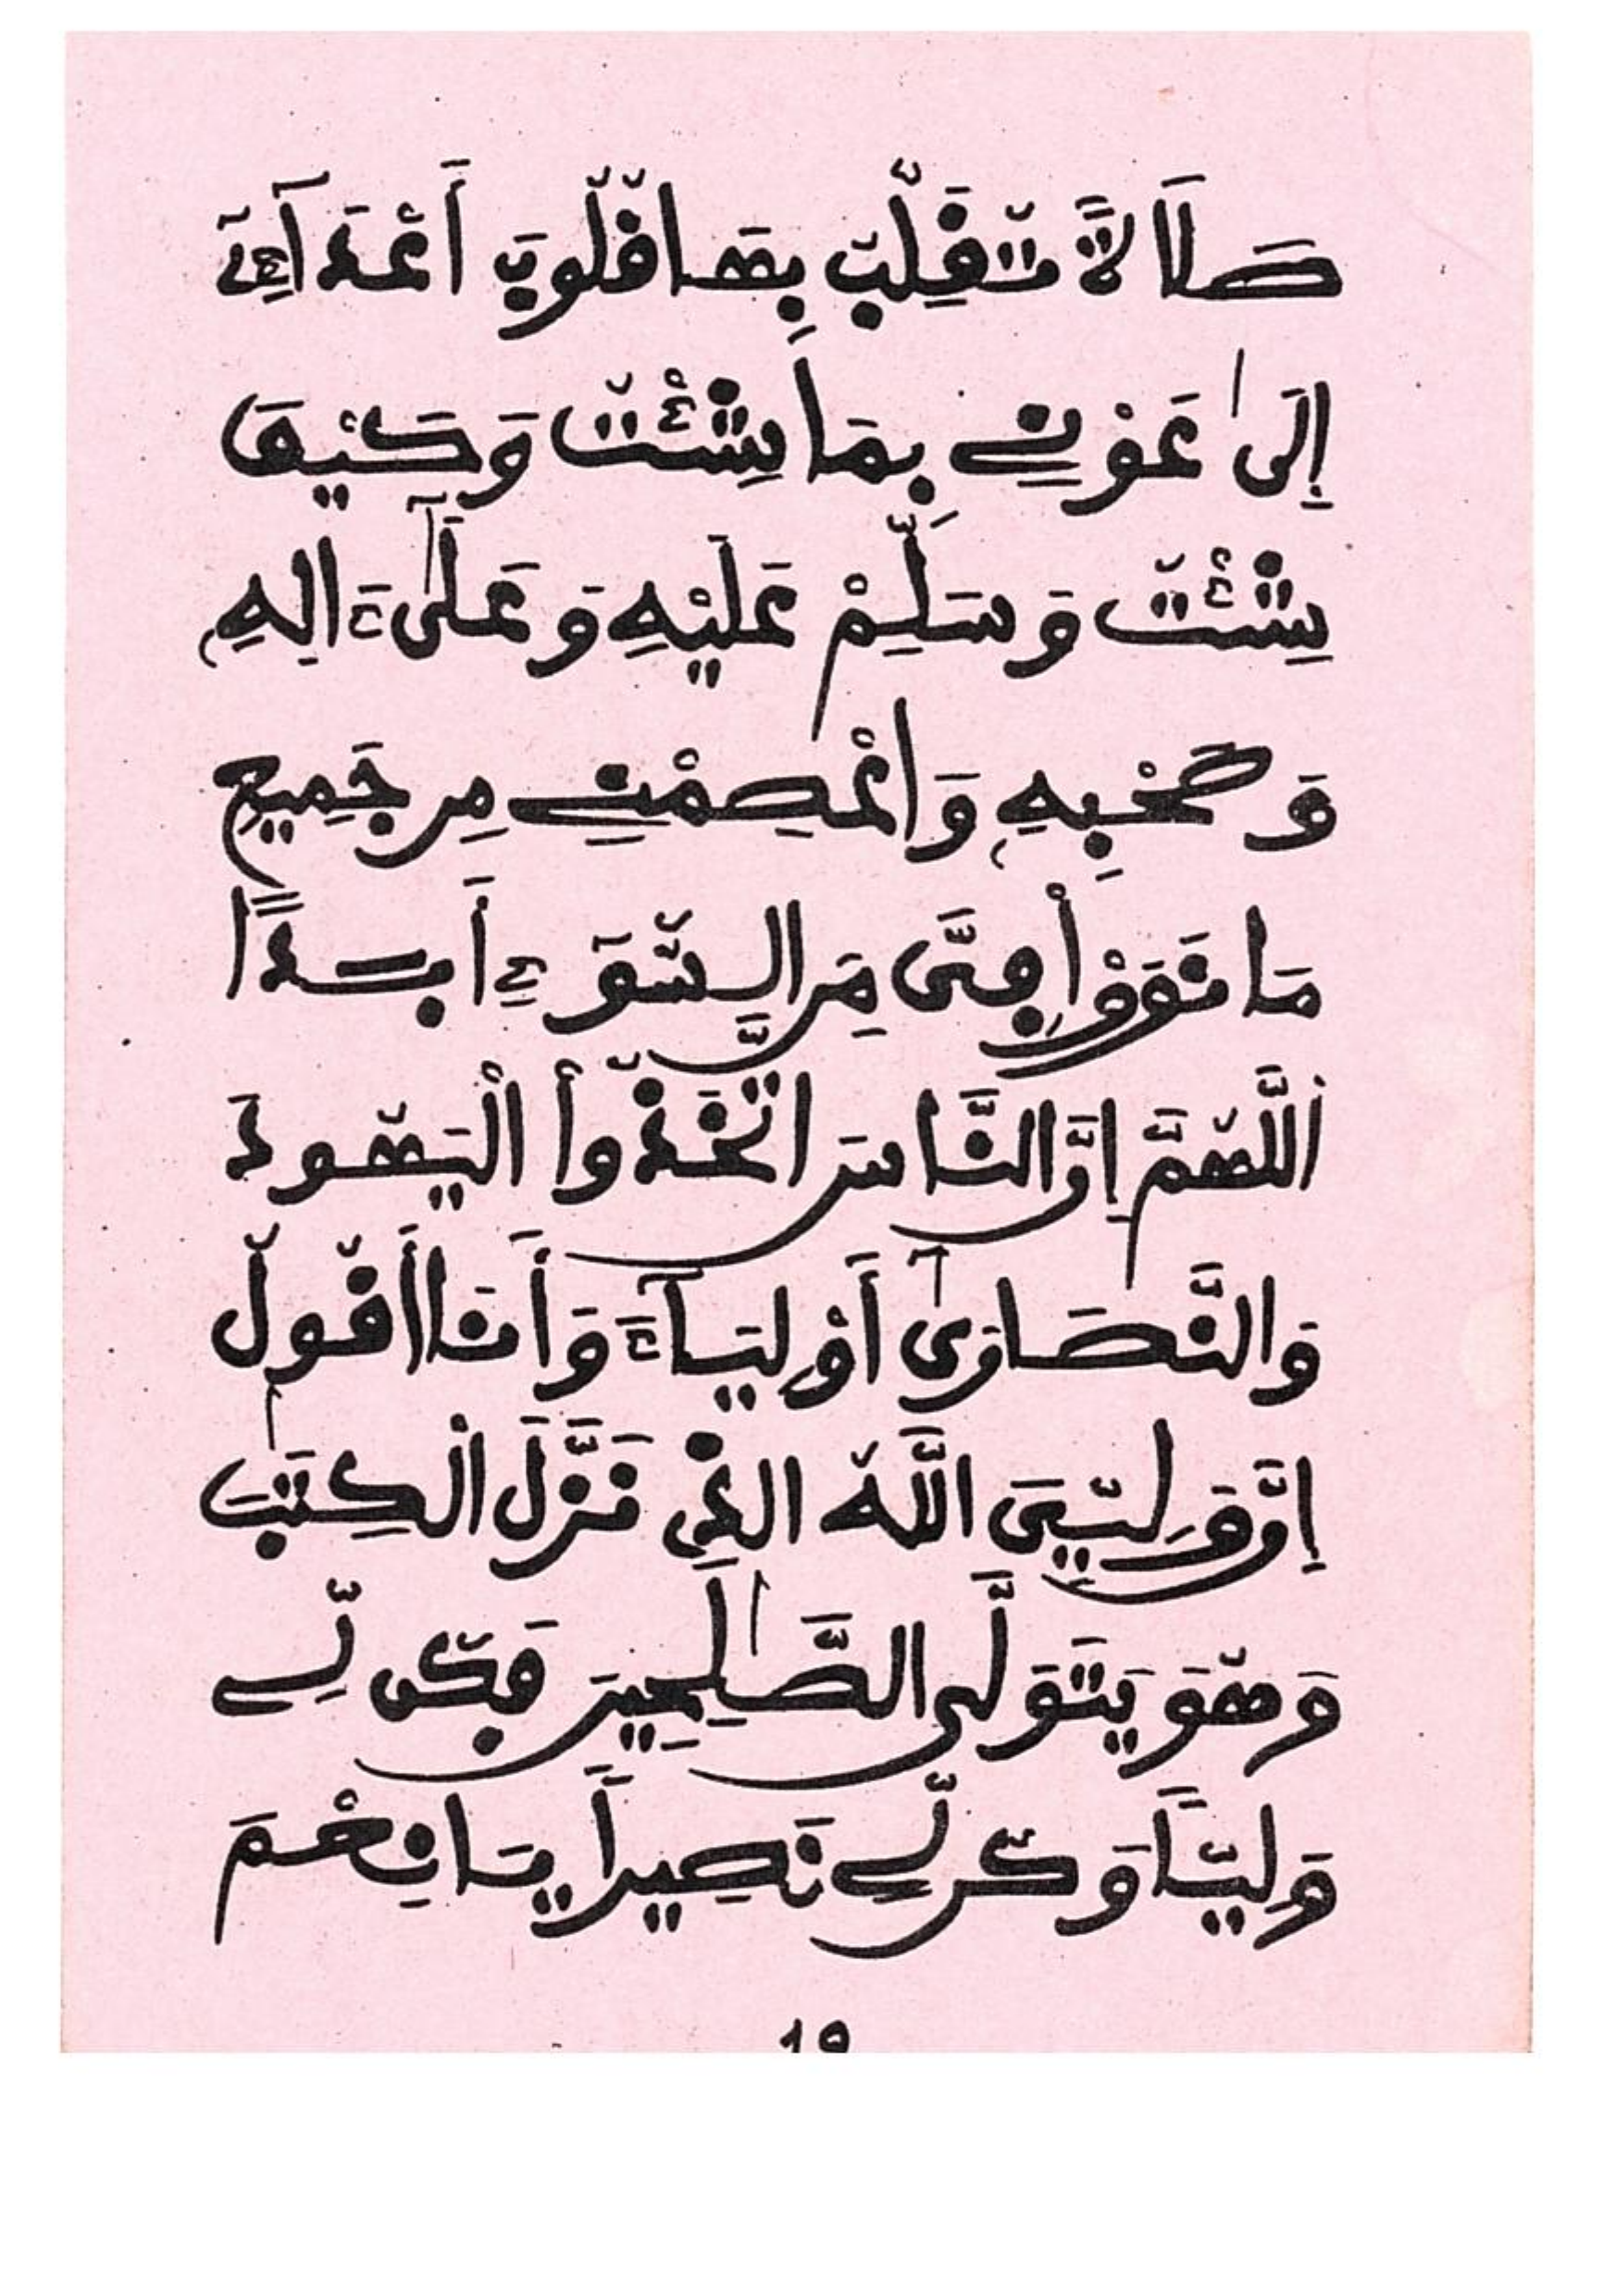 صَلَاةً تُقَلِّبُ بِهَا قُلُوبَ أَعْدَآءِىَ
إِلَىٰ عَوْنِے بِمَا شِئْتَ وَكَيْفَ
شِئْتَ وَسَلِّمْ عَلَيْهِ وَعَلَىٰٓ ءَالِهِ
وَصَحْبِهِ وَاعْصِمْنِے مِن جَمِيعِ
مَا نَوَوْاْ مِنَ السُّوٓءِ أَبَدًا
اَللَّهُمَّ إِنَّ النَّاسَ اتَّخَذُواْ الْيَهُودَ
وَالنَّصَارَىٰٓ أَوْلِيَآءَ وَأَنَا أَقُولُ
إِنَّ وَلِيِّىَ اللَّهُ الذِى نَزَّلَ الْكِتَٰبَ
وَهُوَ يَتَوَلَّى الصَّٰلِحِينَ فَكُن لِّے
وَلِيًّا وَكُن لِّے نَصِيراً يَا نِعْمَ
١٩